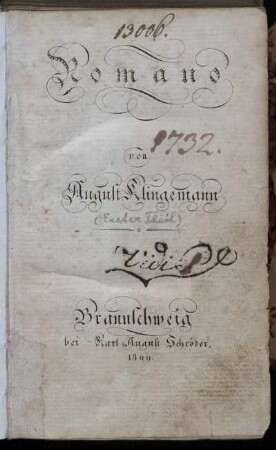 13006.
Romano
von
1732.
August Klingemann
(Erster Theil)
Braunschweig
bei Karl August Schröder,
1800.